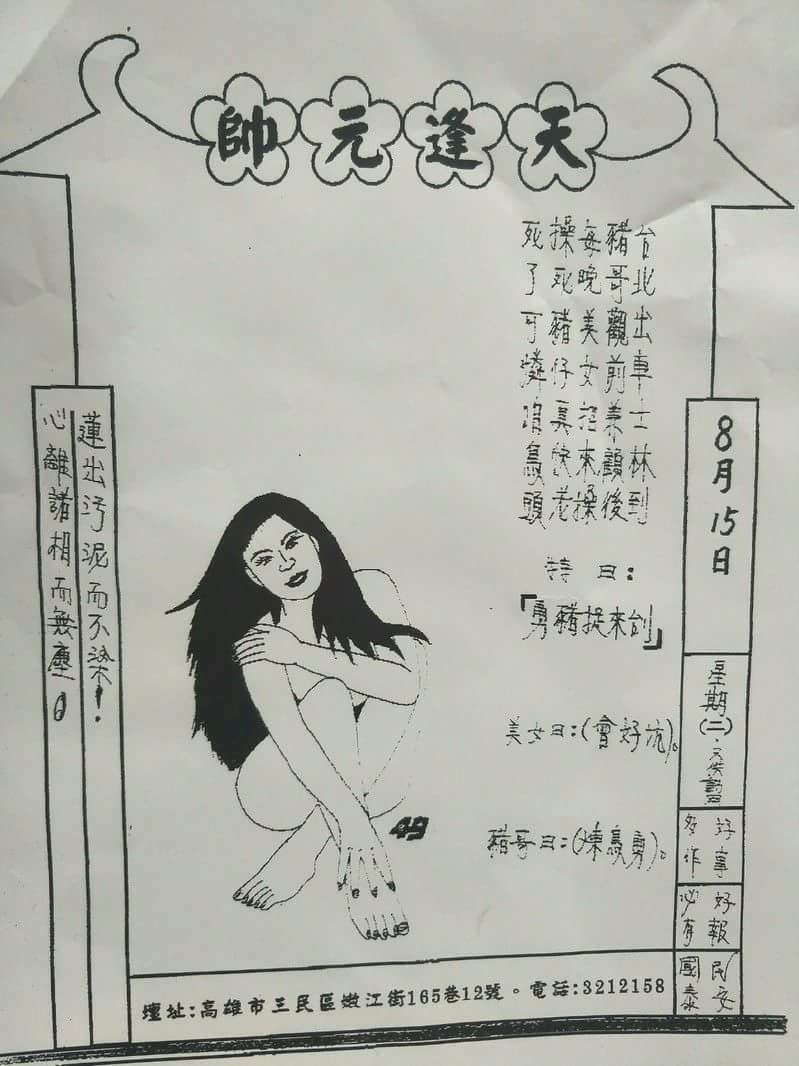 天逢元帥
台北出車士林到
豬哥觀前兼顧後
每晚美女招來操
操死豬仔真快老
死了可憐鳥頭
詩曰:
「勇豬捉來刣」
美女曰:(會好坑)。
豬哥曰:(煉鳥勇)。
8月15日
星期(二).
好事
多作
好報
必有
民安
國泰
49
蓮出污泥而不染!
心離諸相而無塵。
壇址:高雄市三民區嫩江街165巷12號。電話:3212158